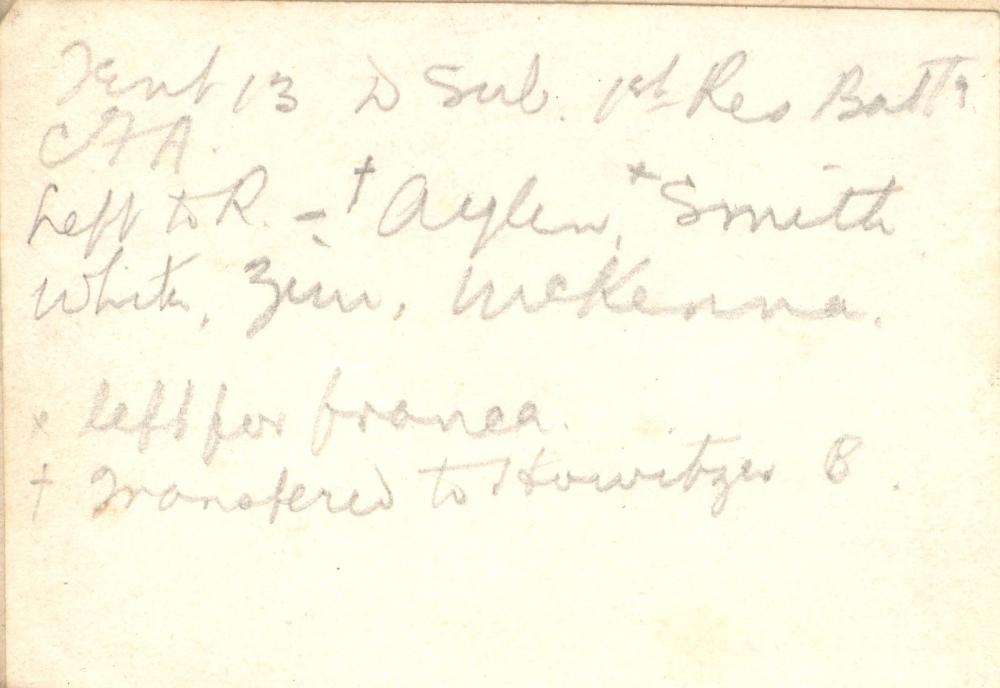 Tent 13 D Sub. 1st Res Batty
CFA.
Left to R. - † Aylen, × Smith
White, Zim, McKenna.
× left for france.
† Transfered to Howitzer B.